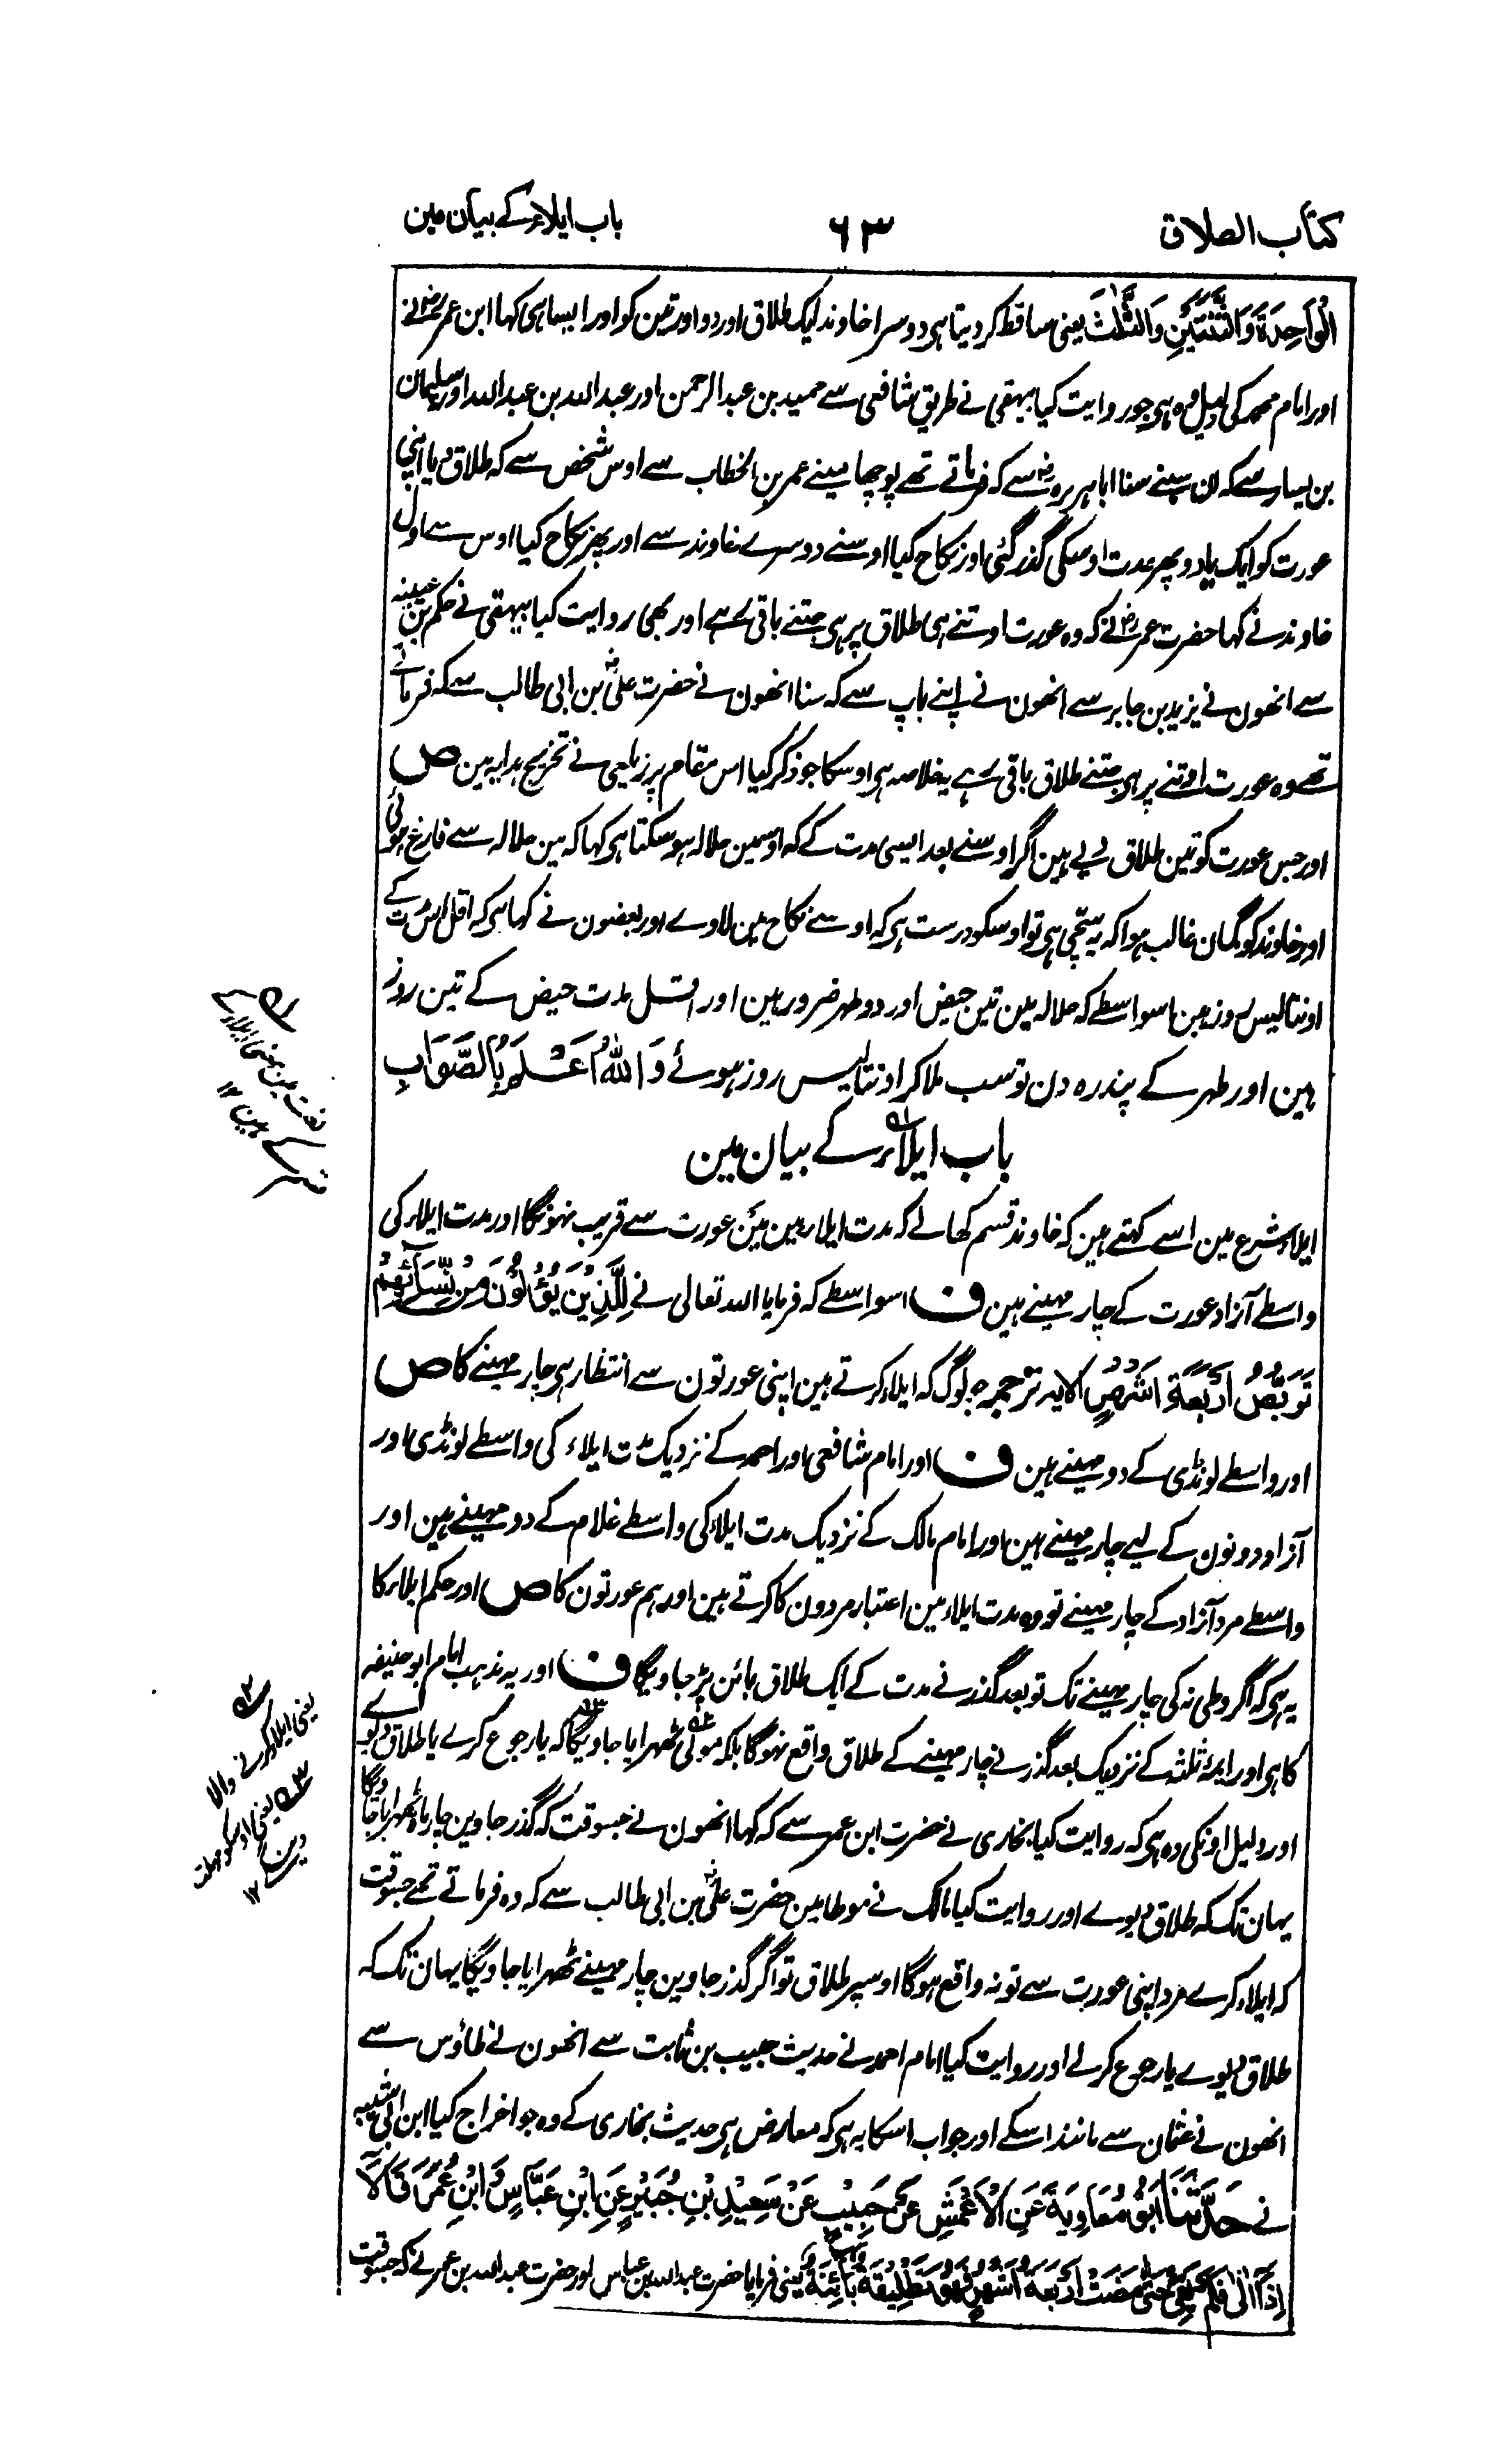 کتاب الطلاق
۶۳
باب ایلاء کے بیان مین
الْوَاحِدَةَ وَالثِّنْتَیْنِ وَالثَّلٰثَ یعنی ساقط کر دیتا ہی دوسرا خاوند ایک طلاق اور دو اور تین کو اور ایسا ہی کہا ابن عمرؓ نے
اور امام محمد کی دلیل وہ ہی جو روایت کیا بیہقی نے طریق شافعی سے حمید بن عبد الرحمن اور عبد اللہ بن عبد اللہ اور سلیمان
بن یسار سے کہ ان سبنے سنا ابا ہریرہ رضؓ سے کہ فرماتے تھے پوچھا مینے عمر بن الخطاب سے اوس شخص سے کہ طلاق دیا اپنی
عورت کو ایک یا دو پھر عدت اوسکی گذر گئی اور نکاح کیا اوسنے دوسرے خاوند سے اور پھر نکاح کیا اوس سے اول
خاوند نے کہا حضرت عمرؓ نے کہ وہ عورت اوتنے ہی طلاق پر ہی جتنے باقی رہے اور بھی روایت کیا بیہقی نے حکم بن عیینہ
سے انھون نے یزید بن جابر سے انھون نے اپنے باپ سے کہ سنا انھون نے حضرت علیؓ بن ابی طالب سے کہ فرماتے
تھے وہ عورت اوتنے پر ہی جتنے طلاق باقی رہے یہ خلاصہ ہی اوسکا جو ذکر کیا اس مقام پر زیلعی نے تخریج ہدایہ مین ص
اور جس عورت کو تین طلاق دیے ہین اگر اوسنے بعد ایسی مدت کے کہ اوسمین حلالہ ہو سکتا ہی کہا کہ مین حلالہ سے فارغ ہوئی
اور خاوند کو گمان غالب ہوا کہ یہ سچّی ہی تو اوسکو درست ہی کہ اوسے نکاح مین لاوے اور بعضون نے کہا ہی کہ اقل اس مدت کے
اونتالیس روز ہین اسواسطے کہ حلالہ مین تین حیض اور دو طہر ضرور ہین اور اقل مدت حیض کے تین روز
ہین اور طہر کے پندرہ دن تو سب ملا کر اونتالیس روز ہوئے وَاللّٰهُ اَعْلَمُ بِالصَّوَابِ
باب ایلاء کے بیان مین
ایلاء شرع مین اسے کہتے ہین کہ خاوند قسم کھالے کہ مدت ایلاء مین مین عورت سے قریب نہونگا اور مدت ایلاء کی
واسطے آزاد عورت کے چار مہینے ہین ف اسواسطے کہ فرمایا اللہ تعالی نے لِلَّذِیْنَ یُؤْلُوْنَ مِنْ نِّسَآئِهِمْ
تَرَبُّصُ اَرْبَعَةِ اَشْهُرٍ الایہ ترجمہ جو لوگ کہ ایلاء کرتے ہین اپنی عورتون سے انتظار ہی چار مہینے کا ص
اور واسطے لونڈی کے دو مہینے ہین ف اور امام شافعی اور احمد کے نزدیک مدت ایلاء کی واسطے لونڈی اور
آزاد دونون کے لیے چار مہینے ہین اور امام مالک کے نزدیک مدت ایلاء کی واسطے غلام کے دو مہینے ہین اور
واسطے مرد آزاد کے چار مہینے تو وہ مدت ایلاء مین اعتبار مردون کا کرتے ہین اور ہم عورتون کا ص اور حکم ایلاء کا
یہ ہی کہ اگر وطی نہ کی چار مہینے تک تو بعد گذرنے مدت کے ایک طلاق بائن پڑ جاویگا ف اور یہ مذہب امام ابو حنیفہ
کا ہی اور ایمۂ ثلثہ کے نزدیک بعد گذرنے چار مہینے کے طلاق واقع نہوگا بلکہ مولی ٹھہرایا جاویگا کہ یا رجوع کرے یا طلاق دیوے
اور دلیل اونکی وہ ہی کہ روایت کیا بخاری نے حضرت ابن عمر سے کہ کہا انھون نے جسوقت کہ گذر جاوین چار ماہ ٹھہرایا جاویگا
یہان تک کہ طلاق دیوے اور روایت کیا مالک نے موطا مین حضرت علیؓ بن ابی طالب سے کہ وہ فرماتے تھے جسوقت
کہ ایلاء کرے مرد اپنی عورت سے تو نہ واقع ہوگا اوسپر طلاق تو اگر گذر جاوین چار مہینے ٹھہرایا جاویگا یہان تک کہ
طلاق دیوے یا رجوع کرلے اور روایت کیا امام احمد نے حدیث حبیب بن ثابت سے انھون نے طاؤس سے
انھون نے عثمان سے مانند اسکے اور جواب اسکا یہ ہی کہ معارض ہی حدیث بخاری کے وہ جو اخراج کیا ابن ابی شیبہ
نے حَدَّثَنَا اَبُوْ مُعَاوِیَةَ عَنِ الْاَعْمَشِ عَنْ حَبِیْبٍ عَنْ سَعِیْدِ بْنِ جُبَیْرٍ عَنِ ابْنِ عَبَّاسٍ وَّابْنِ عُمَرَ قَالَا
اِذَا اٰلٰی فَلَمْ یَفِئْ حَتّٰی مَضَتْ اَرْبَعَةُ اَشْهُرٍ فَهُوَ تَطْلِیْقَةٌ بَائِنَةٌ یعنی فرمایا حضرت عبد اللہ بن عباس اور حضرت عبد اللہ بن عمر نے کہ جسوقت
لغت مین معنی ایلاء کے
قسم کے ہین ۱۲
یعنی ایلاء کرنے والا
یعنی اوسکو مہلت
دینگے ۱۲